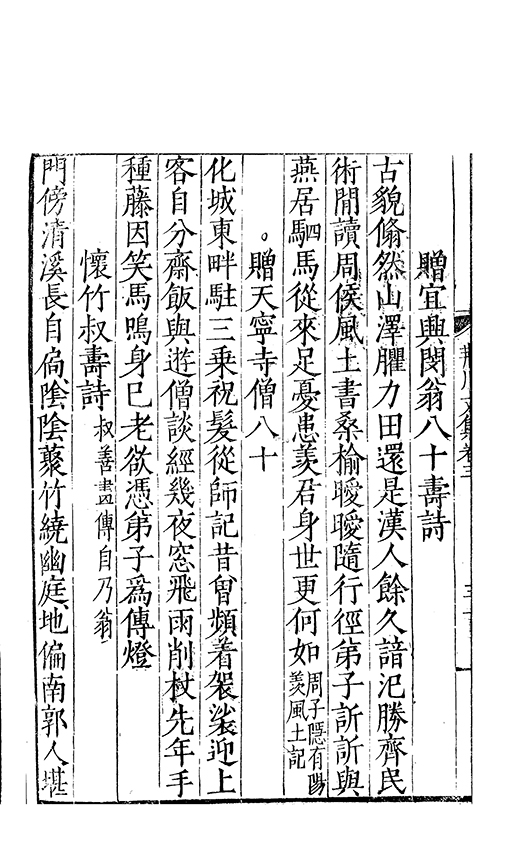 贈宜興閔翁八十壽詩
古貌翛然山澤臞力田還是漢人餘久諳氾勝齊民
術閒讀周侯風土書桑榆曖曖隨行徑弟子訢訢與
燕居駟馬從來足憂患羨君身世更何如周子隱有陽羨風土記
贈天寧寺僧八十
化城東畔駐三乗祝髮從師記昔曾頻着袈裟迎上
客自分齋飯與遊僧談經幾夜窓飛雨削杖先年手
種藤因笑馬鳴身已老欲憑弟子爲傳燈
懷竹叔壽詩叔善畫傳自乃翁
門傍清溪長自扃陰陰藂竹繞幽庭地偏南郭人堪
荆川文集卷三